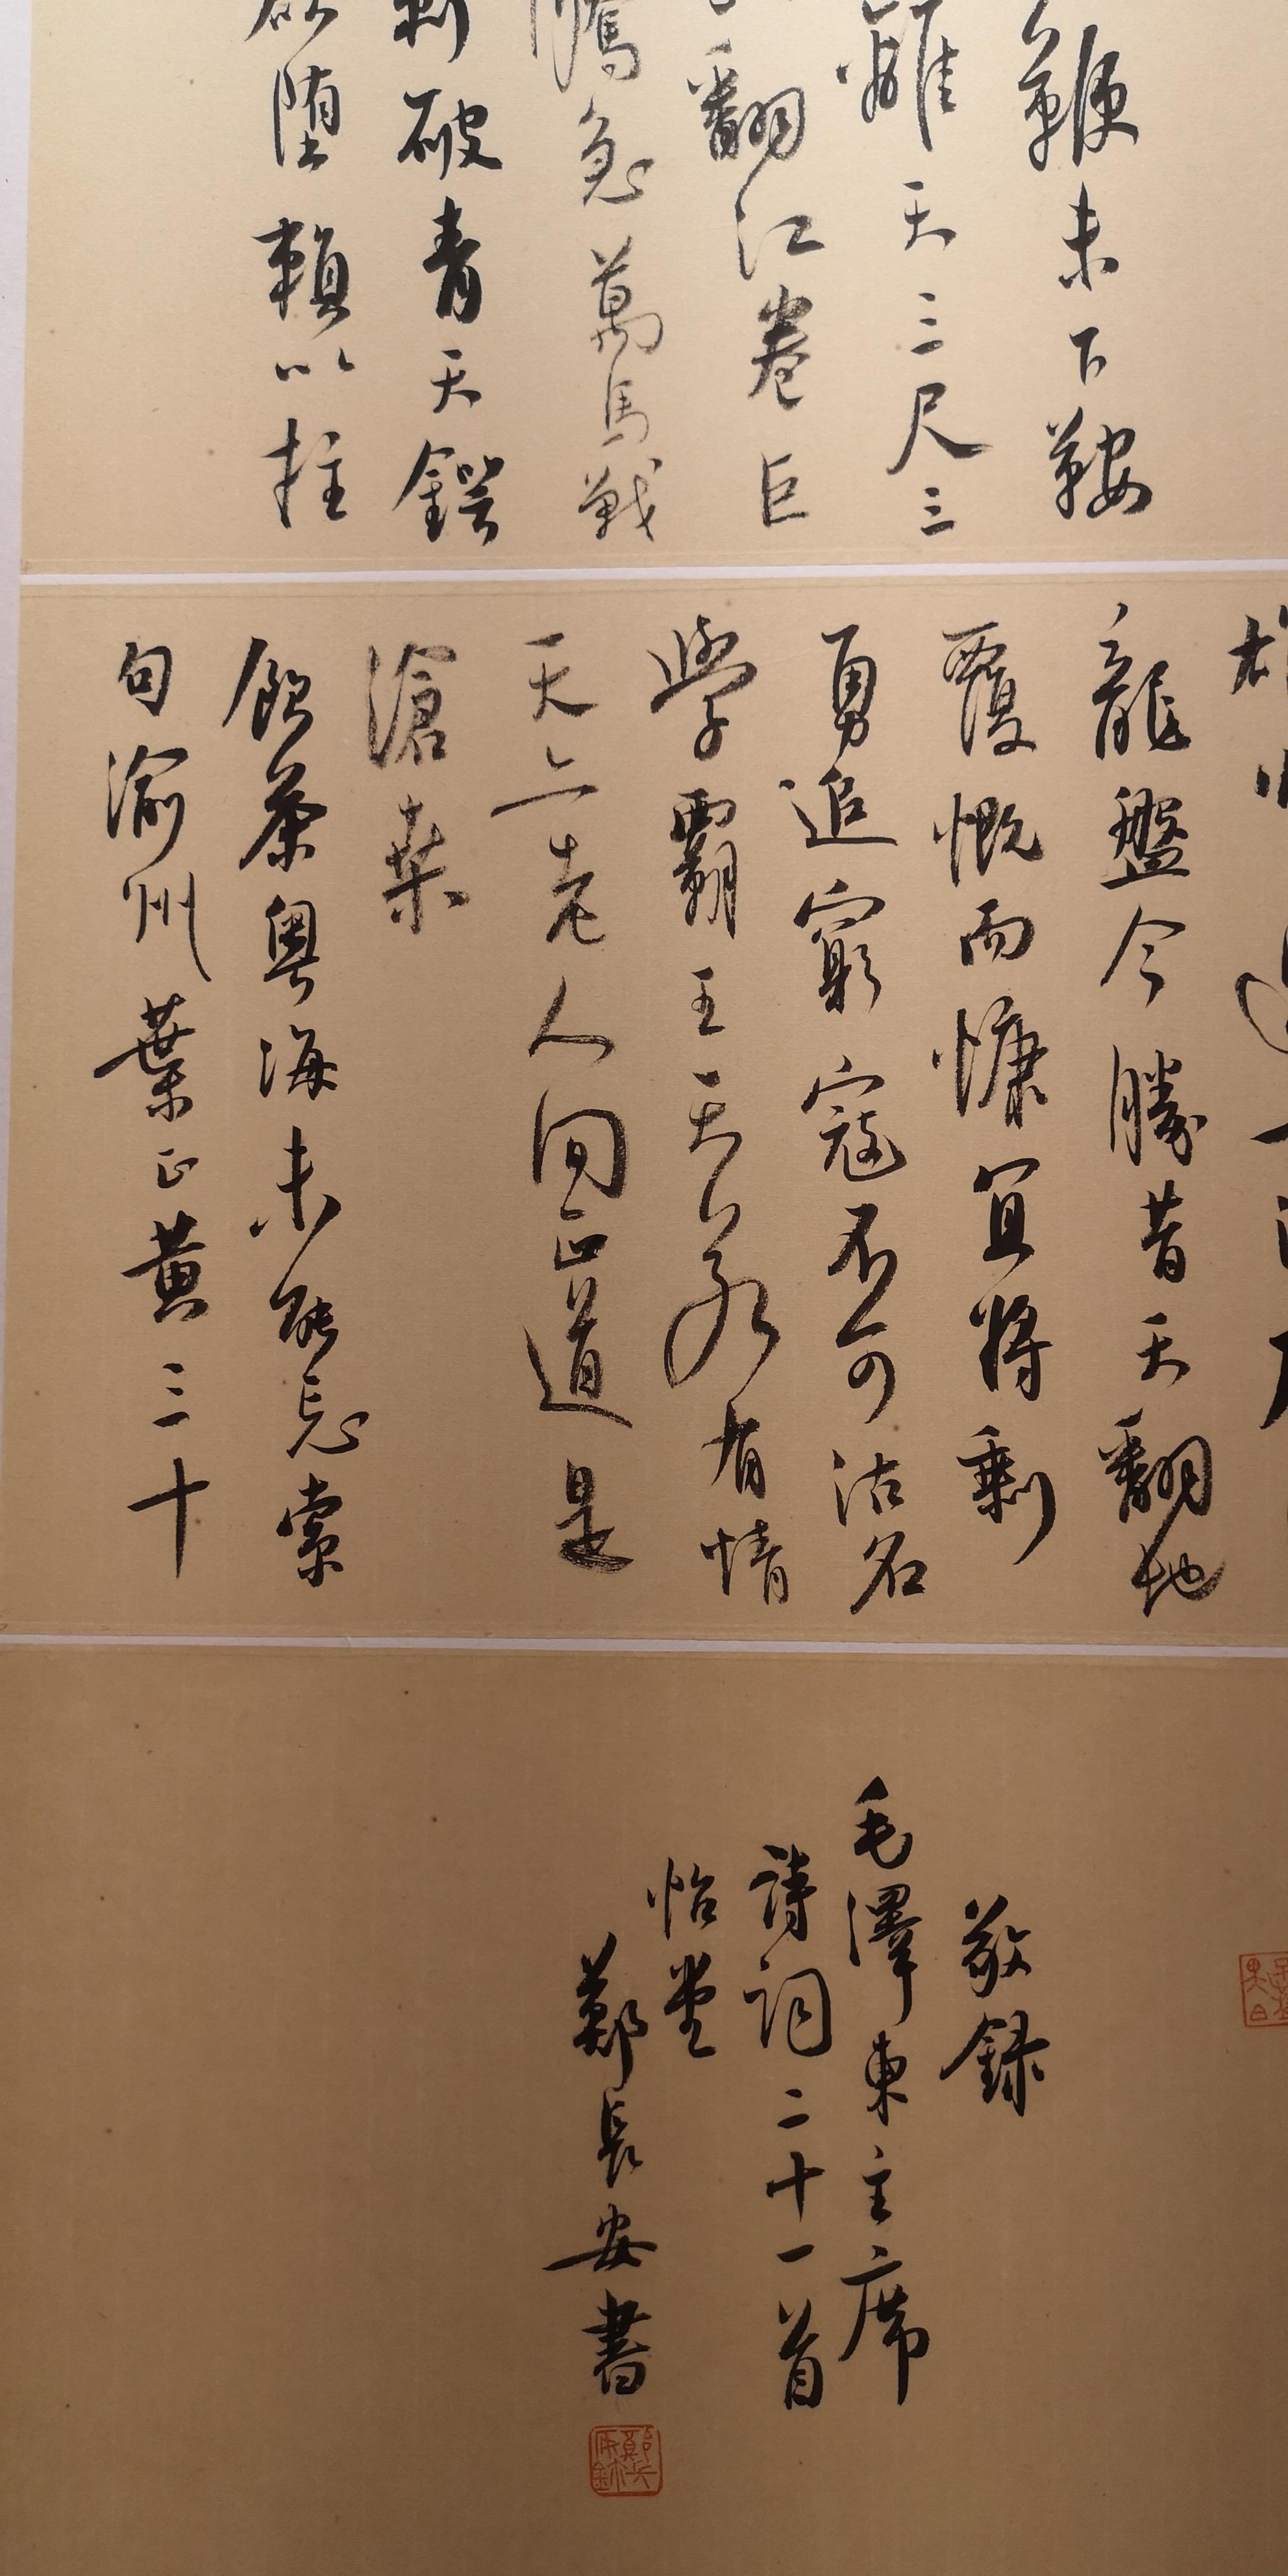 鞭未下鞍
離天三尺三
翻江卷巨
急萬馬戰
刺破青天鍔
欲墮賴以拄
龍盤今勝昔天翻地
覆慨而慷宜將剩
勇追窮寇不可沽名
學霸王天若有情
天亦老人間正道是
滄桑
飲茶粵海未能忘索
句渝州葉正黃三十
敬錄
毛澤東主席
詩詞二十一首
怡堂
鄭長安書